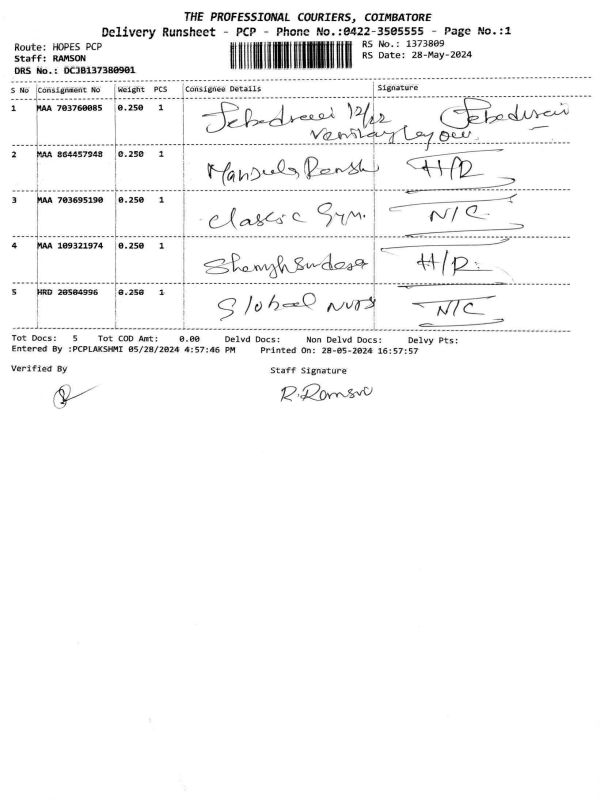 THE PROFESSIONAL COURIERS, COIMBATORE
Delivery Runsheet - PCP - Phone No.:0422-3505555 - Page No.:1
Route: HOPES PCP
RS No.: 1373809
Staff: RAMSON
RS Date: 28-May-2024
DRS No.: DCJB137380901
S No Consignment No Weight PCS Consignee Details Signature
1 MAA 703760085 0.250 1 12/22
2 MAA 864457948 0.250 1 H/R
3 MAA 703695190 0.250 1 Classic Gym. N/C
4 MAA 109321974 0.250 1 H/R
5 HRD 20504996 0.250 1 Global N/C
Tot Docs: 5 Tot COD Amt: 0.00 Delvd Docs: Non Delvd Docs: Delvy Pts:
Entered By :PCPLAKSHMI 05/28/2024 4:57:46 PM Printed On: 28-05-2024 16:57:57
Verified By Staff Signature